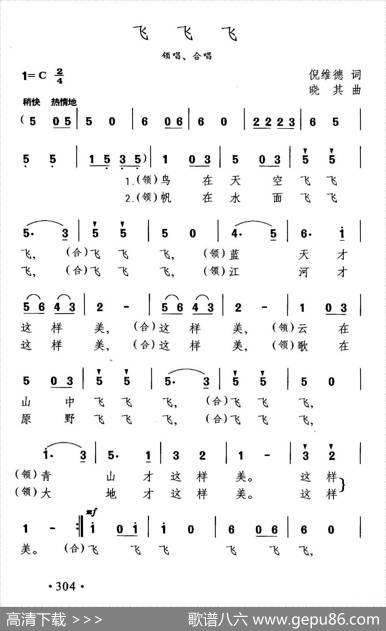 飞 飞 飞
领唱、合唱
1=C 2/4
倪维德 词
稍快 热情地
晓 其 曲
(5 05 | 5 0 | 6 06 | 6 0 | 2223 6 |
5 5 | 15 35) | 1 03 | 5 03 | 5 5 |
1.(领)鸟 在 天 空 飞 飞
2.(领)帆 在 水 面 飞 飞
5· 3 | 5 5 | 5 0 | 4· 5 | 6· 1 |
飞, (合)飞 飞 飞, (领)蓝 天 才
飞, (合)飞 飞 飞, (领)江 河 才
56 43 | 2 - | 56 43 | 2 - | 1 03 |
这 样 美, (合)这 样 美, (领)云 在
这 样 美, (合)这 样 美, (领)歌 在
5 03 | 5 5 | 5· 3 | 5 5 | 5 0 |
山 中 飞 飞 飞, (合)飞 飞 飞,
原 野 飞 飞 飞, (合)飞 飞 飞,
1· 3 | 5· 1 | 2 23 | 1 - | 3 2 |
(领)青 山 才 这 样 美。 这 样
(领)大 地 才 这 样 美。 这 样
mf
1 - :‖ 1 01 | 1 0 | 6 06 | 6 0 |
美。 (合)飞 飞 飞, 飞 飞 飞,
·304·
高清下载 >>>
歌谱八六 www.gepu86.com